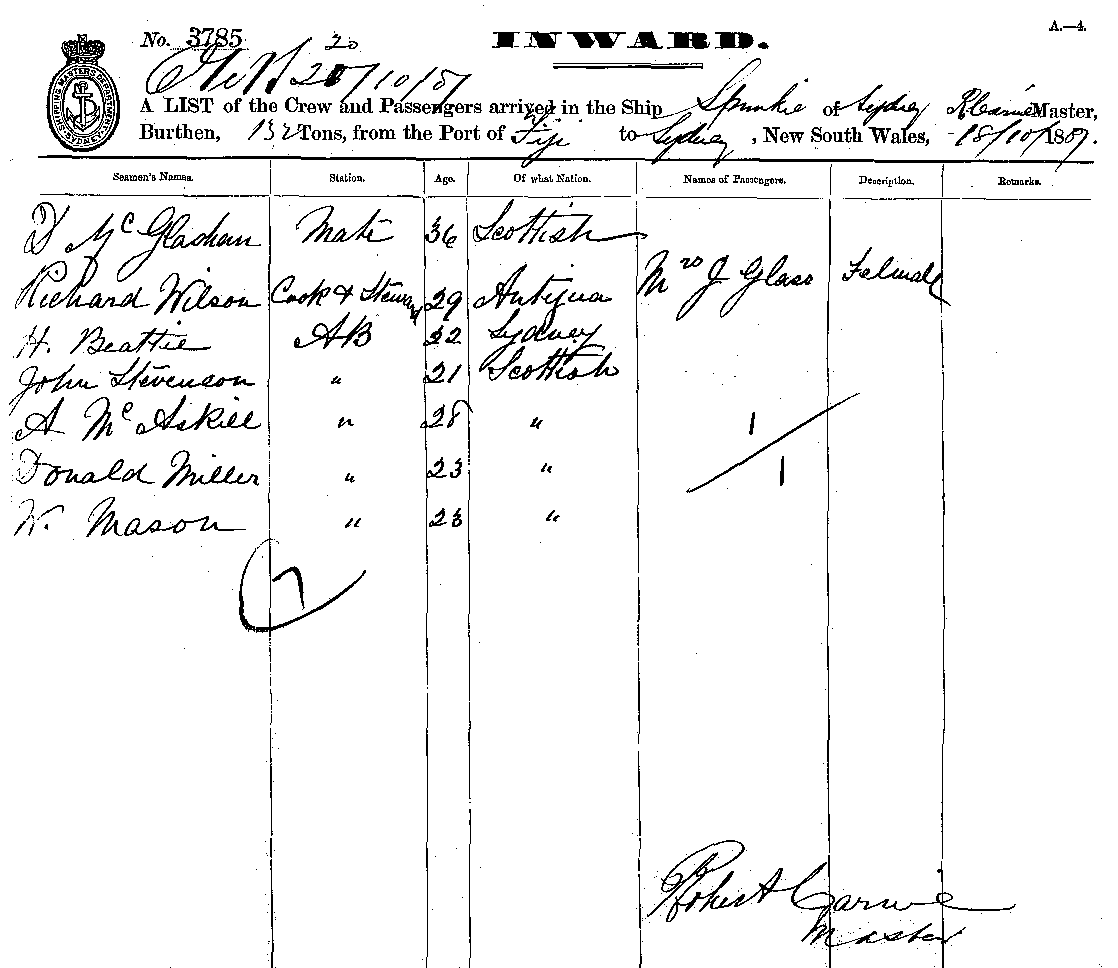 No. 3785
INWARD.
A.—4.
20
20/10/87
A LIST of the Crew and Passengers arrived in the Ship Spunkie of Sydney Master,
Burthen, 132 Tons, from the Port of Fiji to Sydney, New South Wales, 18/10/1887.
Seamen's Names. Station. Age. Of what Nation. Names of Passengers. Description. Remarks.
D McGlashan Mate 36 Scottish
Richard Wilson Cook & Steward 29 Antigua Mrs J Glass Female
H. Beattie AB 22 Sydney
John Stevenson " 21 Scottish
A McAskill " 28 " 1
Donald Miller " 23 " 1
W. Mason " 23 "
7
Robert
Master